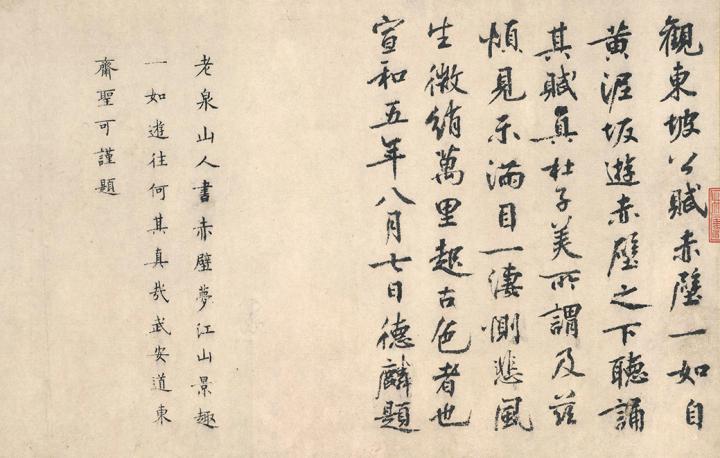 觀東坡公賦赤壁一如自
黄泥坂遊赤壁之下聽誦
其賦真杜子美所謂及兹
煩見示滿目一淒惻悲風
生微綃萬里起古色者也
宣和五年八月七日德麟題
老泉山人書赤壁夢江山景趣
一如遊往何其真哉武安道東
齋聖可謹題